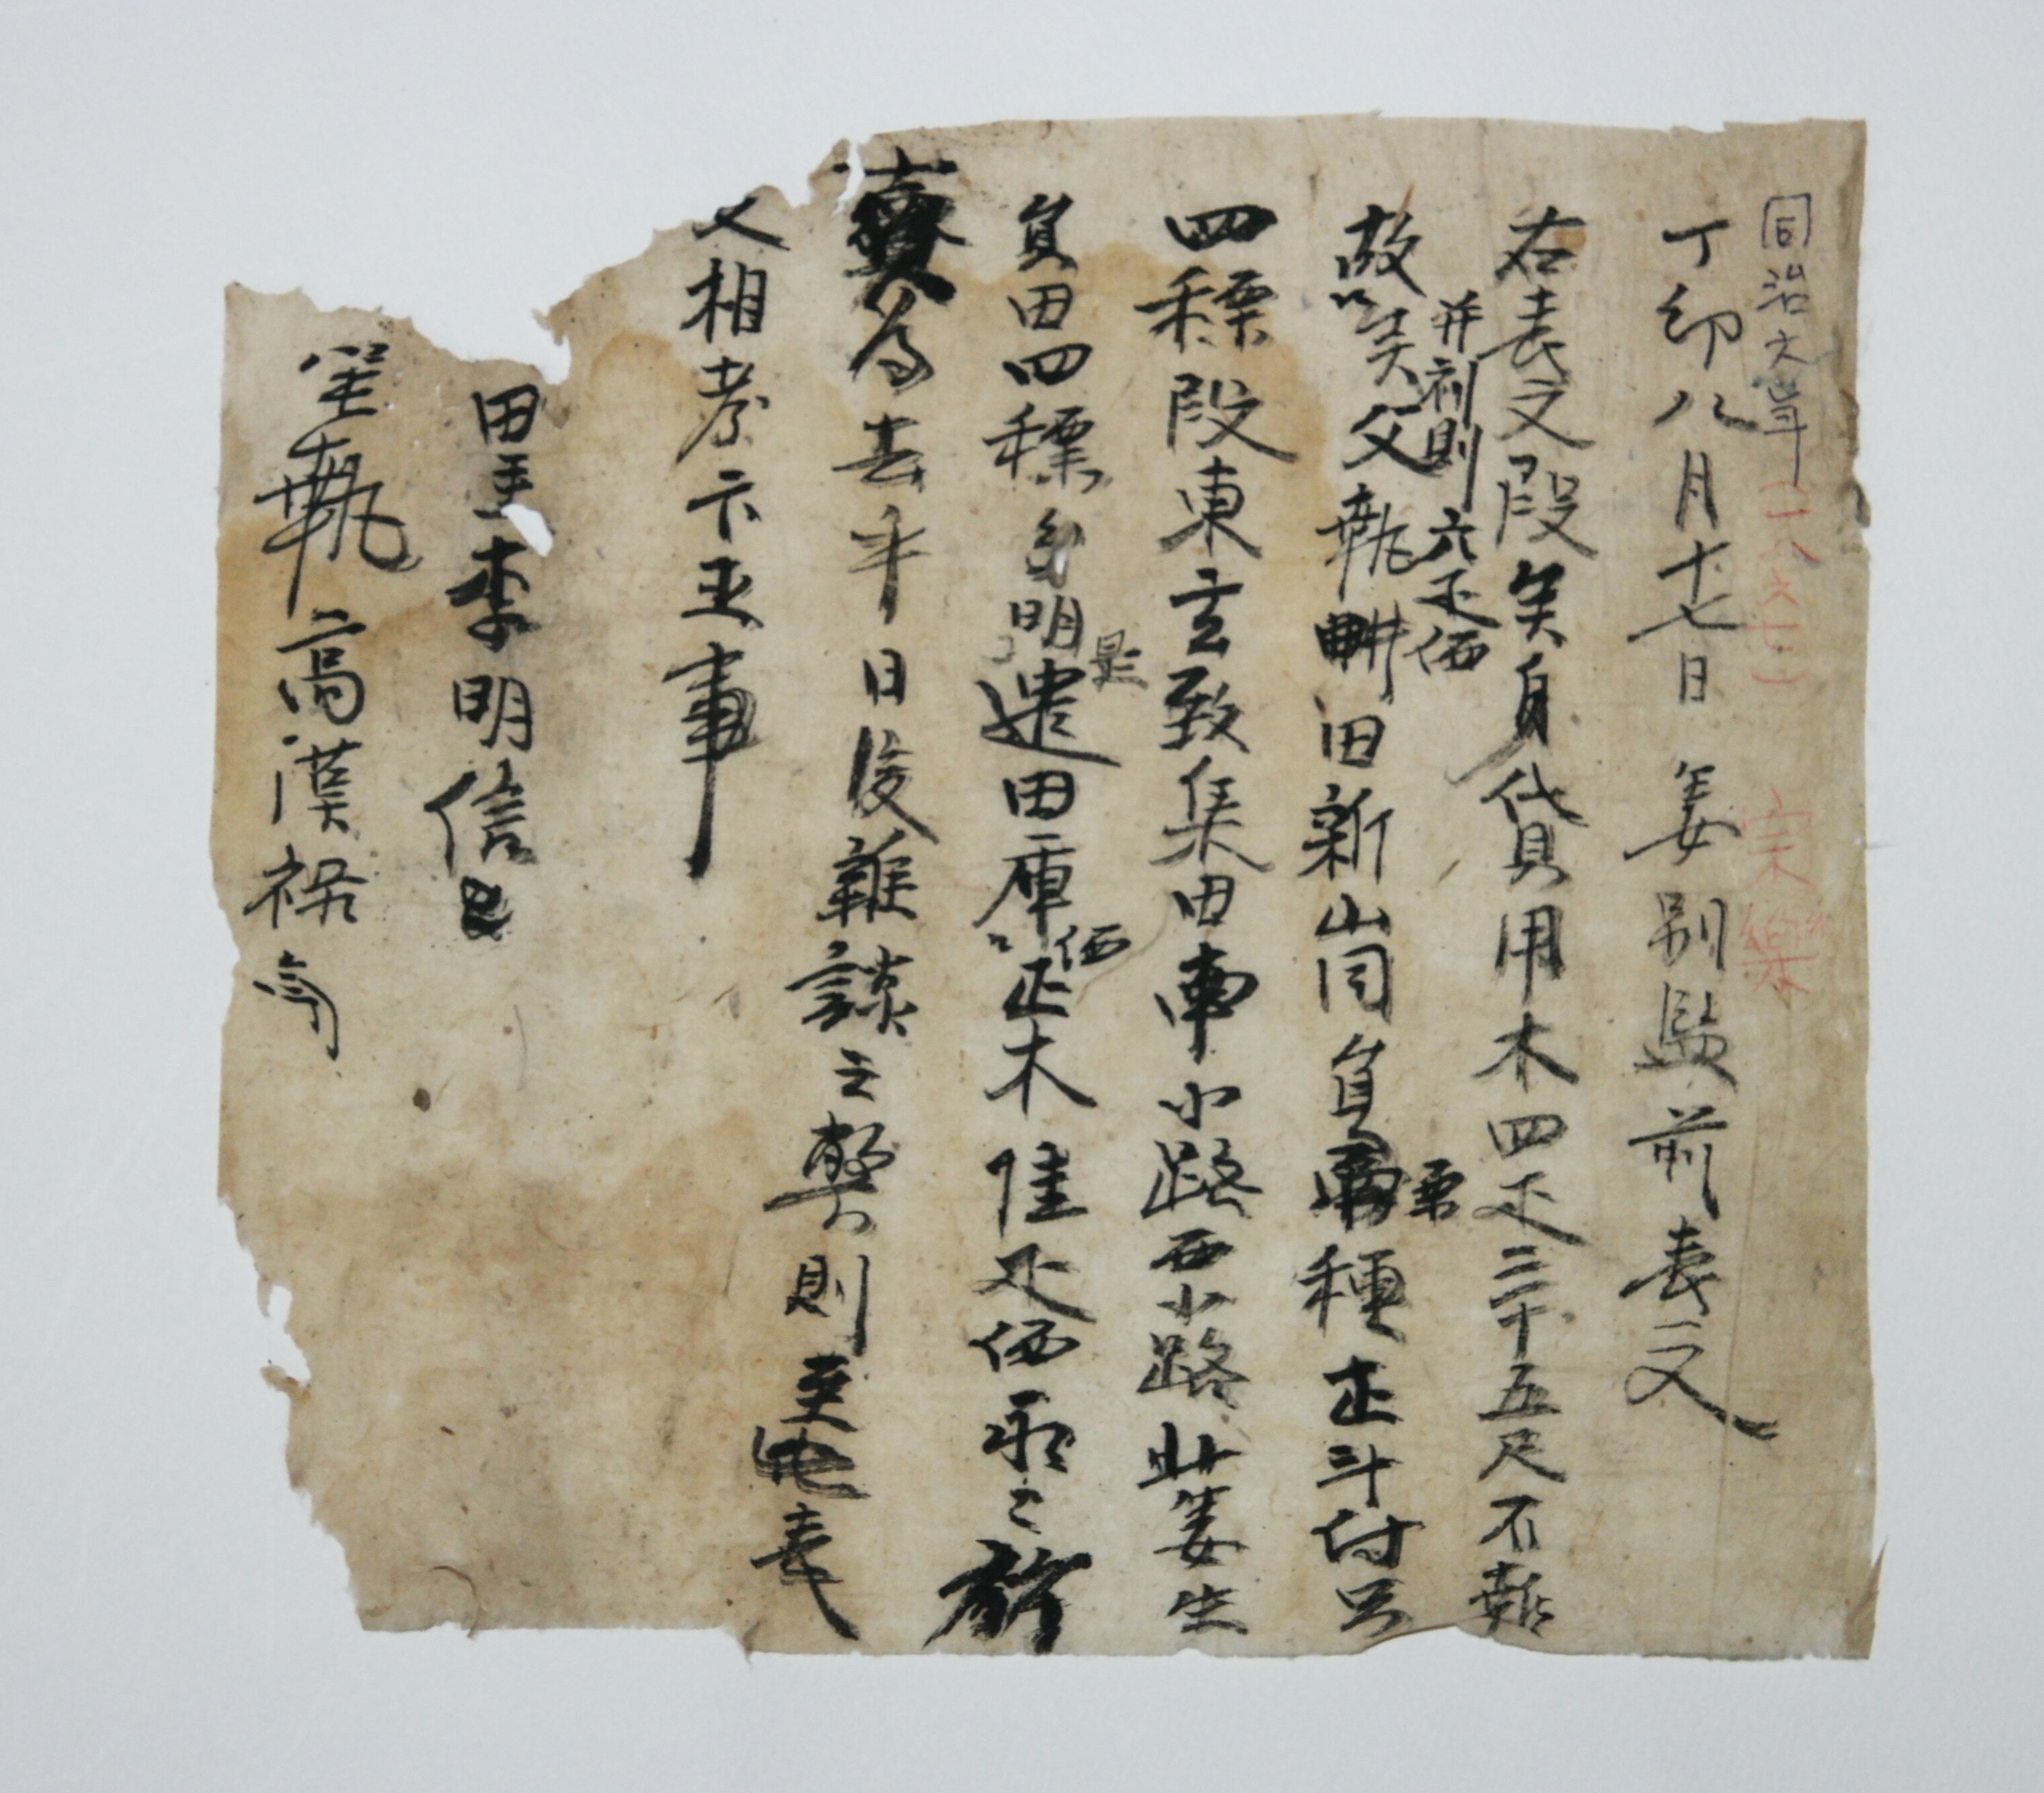 同治六年 一八六七 宗樂
丁卯八月十七日姜別監前表文
右表文段矣身貸用木四疋三十五尺不報
并利則六疋価
故以矣父執耕田新山同員粟種壱斗付只
四標段東玄致集田南小路西小路北姜生
員田四標分明是遣田庫以価正木陸疋価承之
賣爲去乎日後雜談之弊則至 表
文相考卞正事
田主李明信
筆執高漢祿